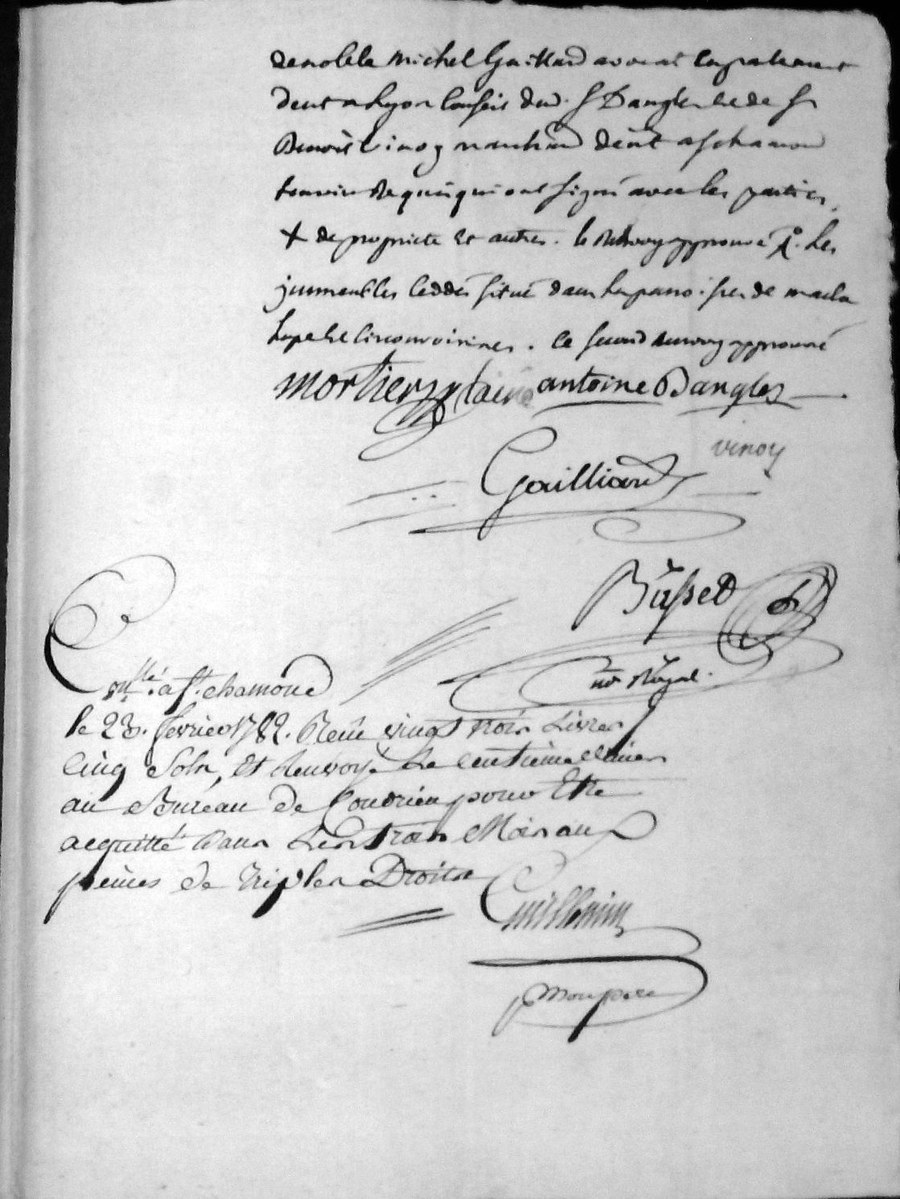 de noble Michel Gaillard avocat en parlement
demt a Lyon conseil dud. Sr Dangles et de Sr
Benoit Vinoy marchand demt a St chamond
temoins Requis qui ont signé avec les parties,
+ de propriete et autres. le Renvoy approuvé Les
immeubles cedés situé dans les paroisses de macla
Lupe et circonvoisines. ce second Renvoy approuvé
mortier antoine Dangles
vinoy
Gailliard
Busset
nre Royal.
Conllé. a St. chamond
le 23. fevrier 1782. Receu vingt trois Livres
cinq Sols, et Renvoyé Le Centième denier
au Bureau de Condrieu pour Etre
acquitté dans Les trois Mois aux
peines de triples Droits
Guillemin
p mon pere